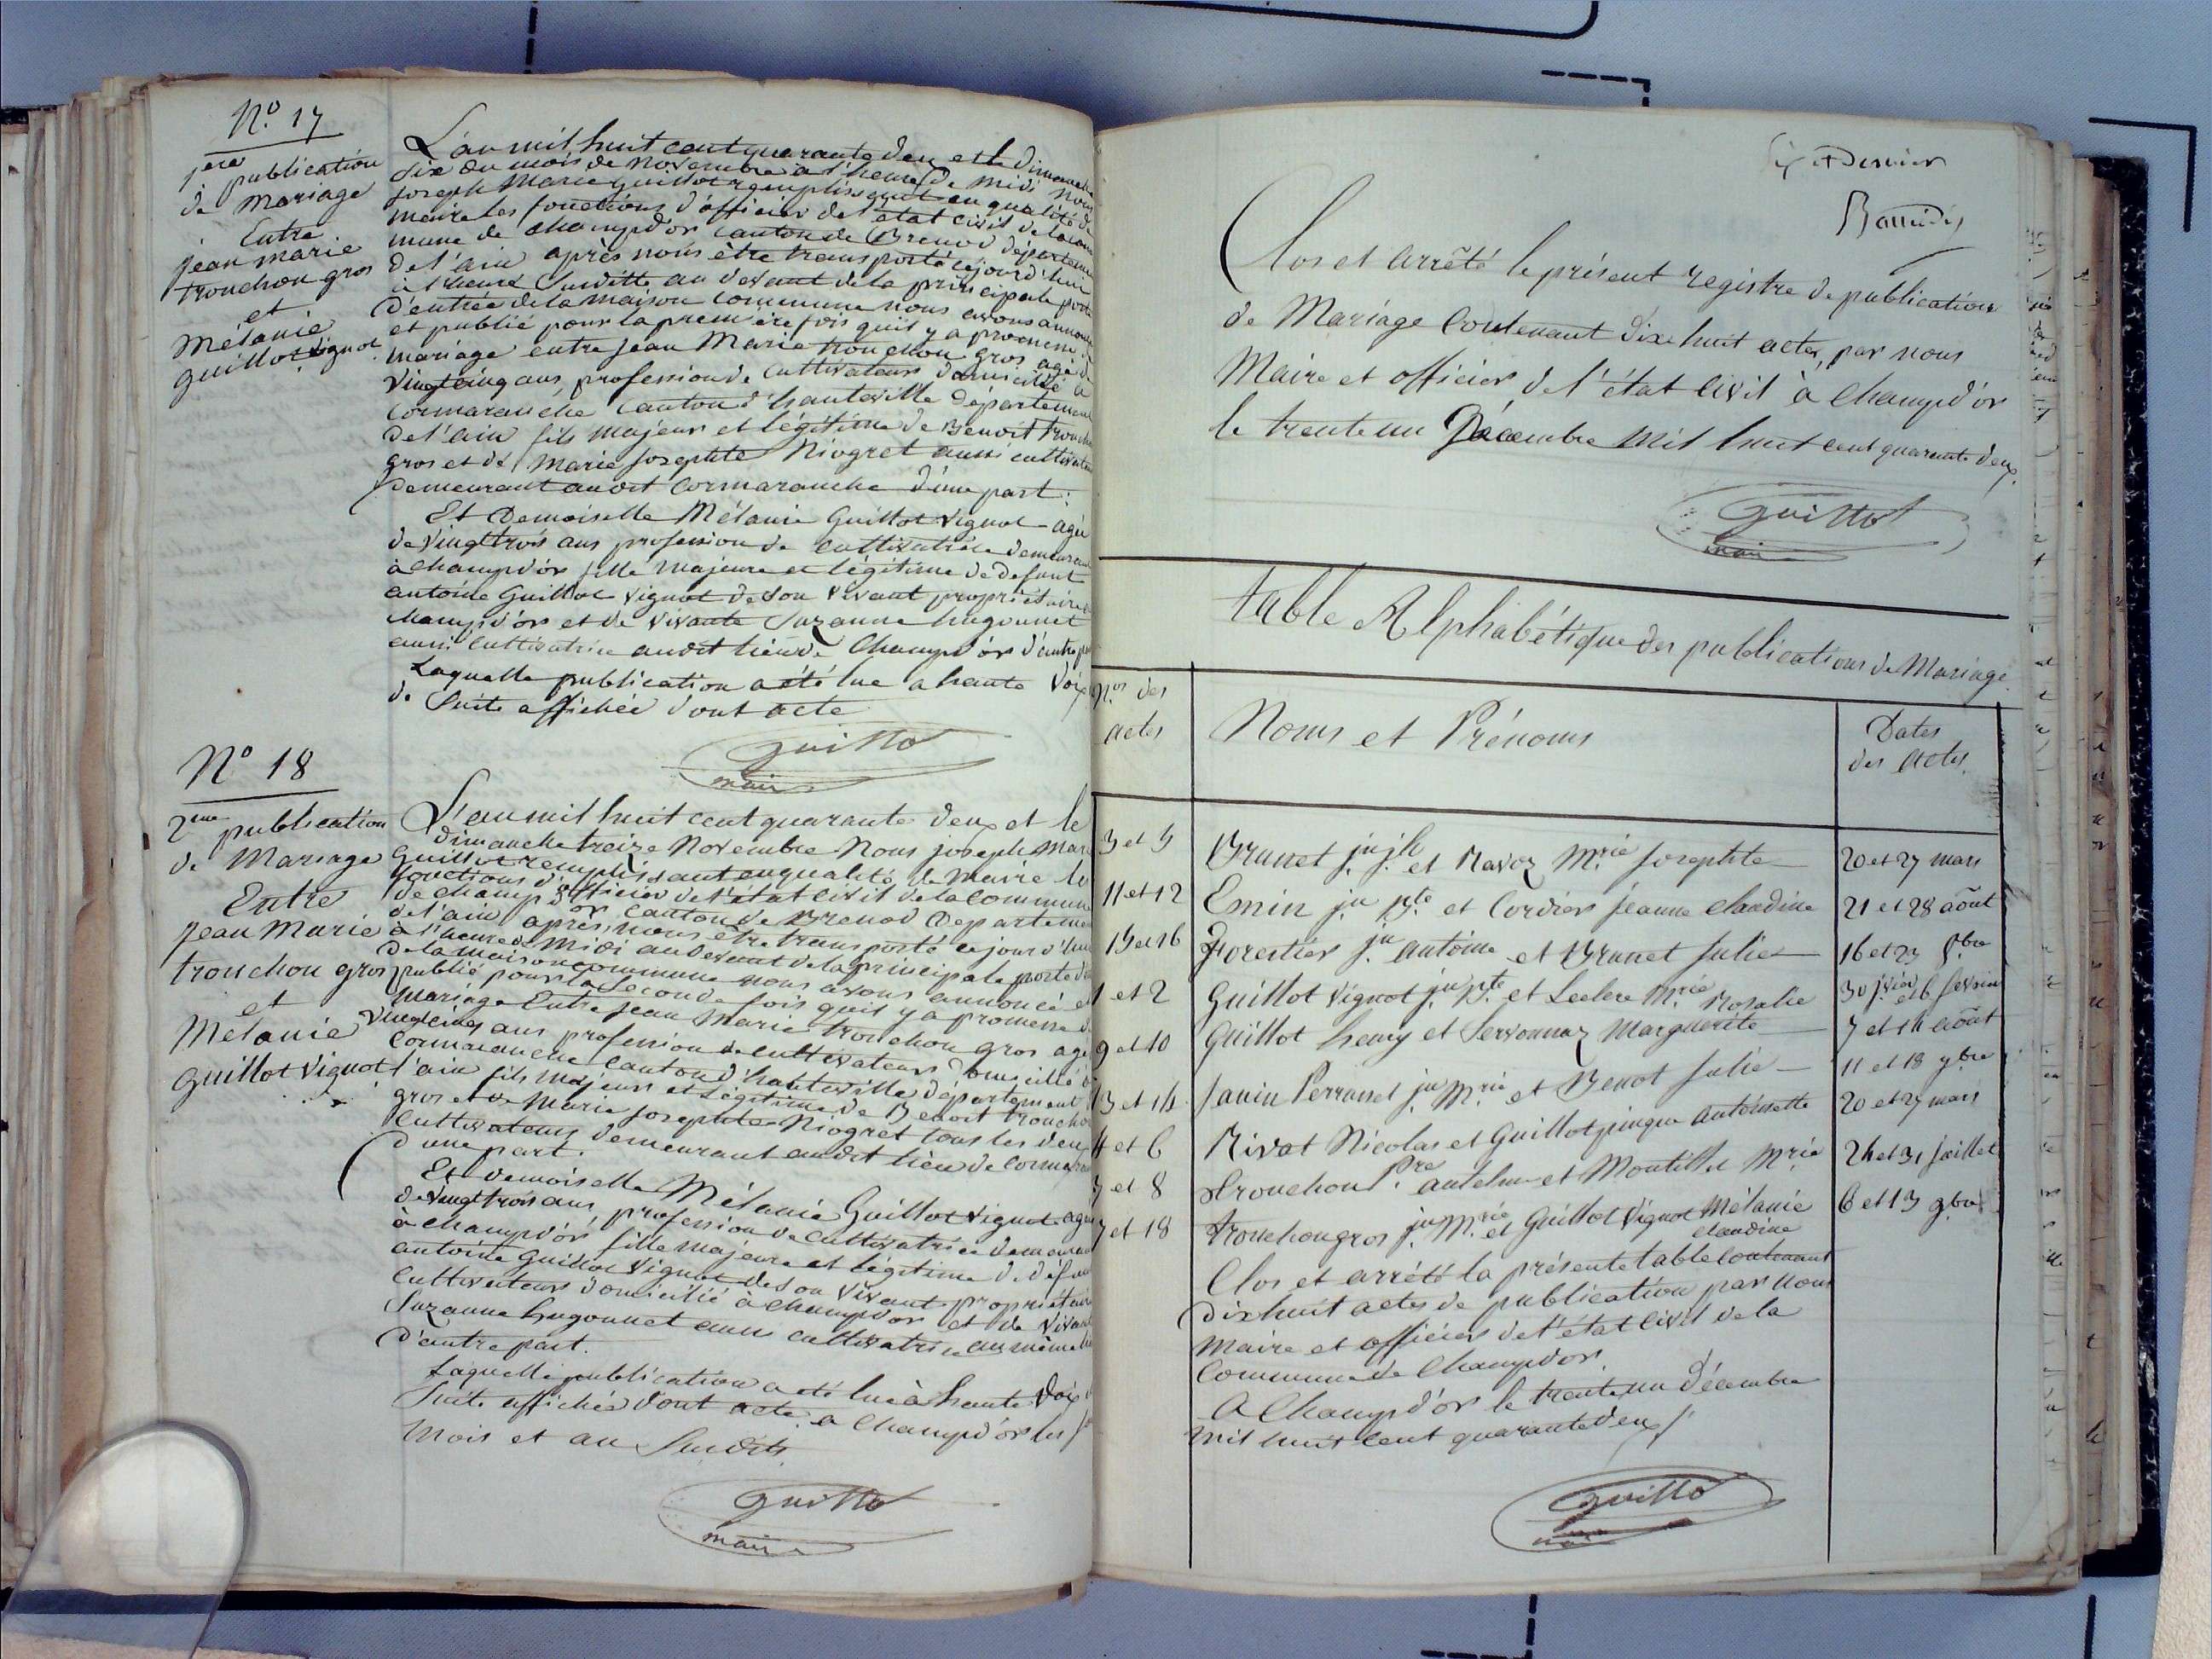 N.º 17
1ere publication
de Mariage
Entre
jean marie
tronchon gros
et
Mélanie
guillot vignot
L'an mil huit cent quarante deux et le Dimanche
six du mois de Novembre à l'heure de midi Nous
joseph Marie Guillot remplissant en qualité de
maire les fonctions d'officier de l'état civil de la com
mune de champd'or canton de Brenod départeme
de l'ain après nous être transporté cejourd'hui
à l'heure susditte au devant de la principale porte
d'entrée de la maison commune nous avons annonc
et publié pour la première fois qu'il y a promesse de
mariage entre jean Marie tronchon gros agé de
vingt cinq ans, profession de cultivateur domicilié à
Cormaranche canton d'hauteville département
de l'ain fils majeur et légitime de Benoit tronch
gros et de Marie Josephte Niogret aussi cultivate
demeurant audit Cormaranche d'une part :
Et Demoiselle Mélanie Guillot Vignot agée
de vingt trois ans profession de cultivatrice demeuran
à champd'or fille majeure et légitime de defunt
antoine Guillot Vignot de son vivant propriétaire
champd'or et de vivante Suzanne hugonnet
aussi cultivatrice audit lieu de Champd'or d'autre pa
Laquelle publication a été lue a haute Voix
de suite affichée dont acte
Guillot
maire
Nº 18
2me publication
de Mariage
Entre
jean Marie
tronchon gros
et
Mélanie
guillot vignot
L'an mil huit cent quarante deux et le
Dimanche treize Novembre Nous joseph Mari
Guillot remplissant en qualité de Maire les
fonctions d'officier de l'état civil de la commune
de champd'or canton de Brenod Departemen
de l'ain après nous être transporté cejourd'hui
à l'heure de midi au devant de la principale porte de
de la maison commune nous avons annoncé et
publié pour la seconde fois qu'il y a promesse de
Mariage Entre jean Marie tronchon gros agé
vingt cinq ans profession de cultivateur domicilié à
Cormaranche canton d'hauteville département
l'ain fils majeur et légitime de Benoit troncho
gros et de Marie josephte Niogret tous les deux
Cultivateurs demeurant audit lieu de Corma
d'une part.
Et demoiselle Mélanie Guillot Vignot agée
de vingt trois ans, profession de cultivatrice demeuran
à champd'or fille majeure et légitime de défun
antoine Guillot Vignot de son vivant propriétaire
Cultivateur domicilié à champd'or et de vivan
Suzanne hugonnet aussi cultivatrice au même li
d'autre part.
Laquelle publication a été lue à haute voix
suite affichée dont acte a Champd'or les
mois et an susdits.
Guillot
maire
Six et Dernier
Clos et arrêté le présent registre de publication
de Mariage Contenant dix huit actes, par nous
Maire et officier de l'état civil à Champd'or
le trente un Décembre mil huit cent quarante deux
Guillot
maire
table Alphabétique des publications de Mariage
Nos des
actes
Noms et Prénoms
Dates
des actes
3 et 5 Brunet jn jh et Ravoz Mrie josephte 20 et 27 mars
11 et 12 Emin jn Bte et Cordier jeanne claudine 21 et 28 août
15 et 16 Forestier jn antoine et Brunet julie 16 et 23 8bre
1 et 2 Guillot Vignot jn Bte et Leclerc Mrie Rosalie 30 jvier et 6 fevrier
9 et 10 Guillot henry et Servonnaz Marguerite 7 et 14 août
13 et 14 Janin Perrosset jn Mrie et Benot julie 11 et 18 7bre
4 et 6 Rivat Nicolas et Guillot pingue antoinette 20 et 27 mars
7 et 8 Tronchon Pre antelme et Montillet Mrie 24 et 31 juillet
claudine
7 et 18 tronchon gros jn Mrie et Guillot Vignot Mélanie 6 et 13 9bre
Clos et arrété la présente table contenant
dix huit actes de publication par nous
maire et officier de l'état civil de la
Commune de Champd'or.
A Champd'or le trente un décembre
mil huit cent quarante deux /
Guillot
maire